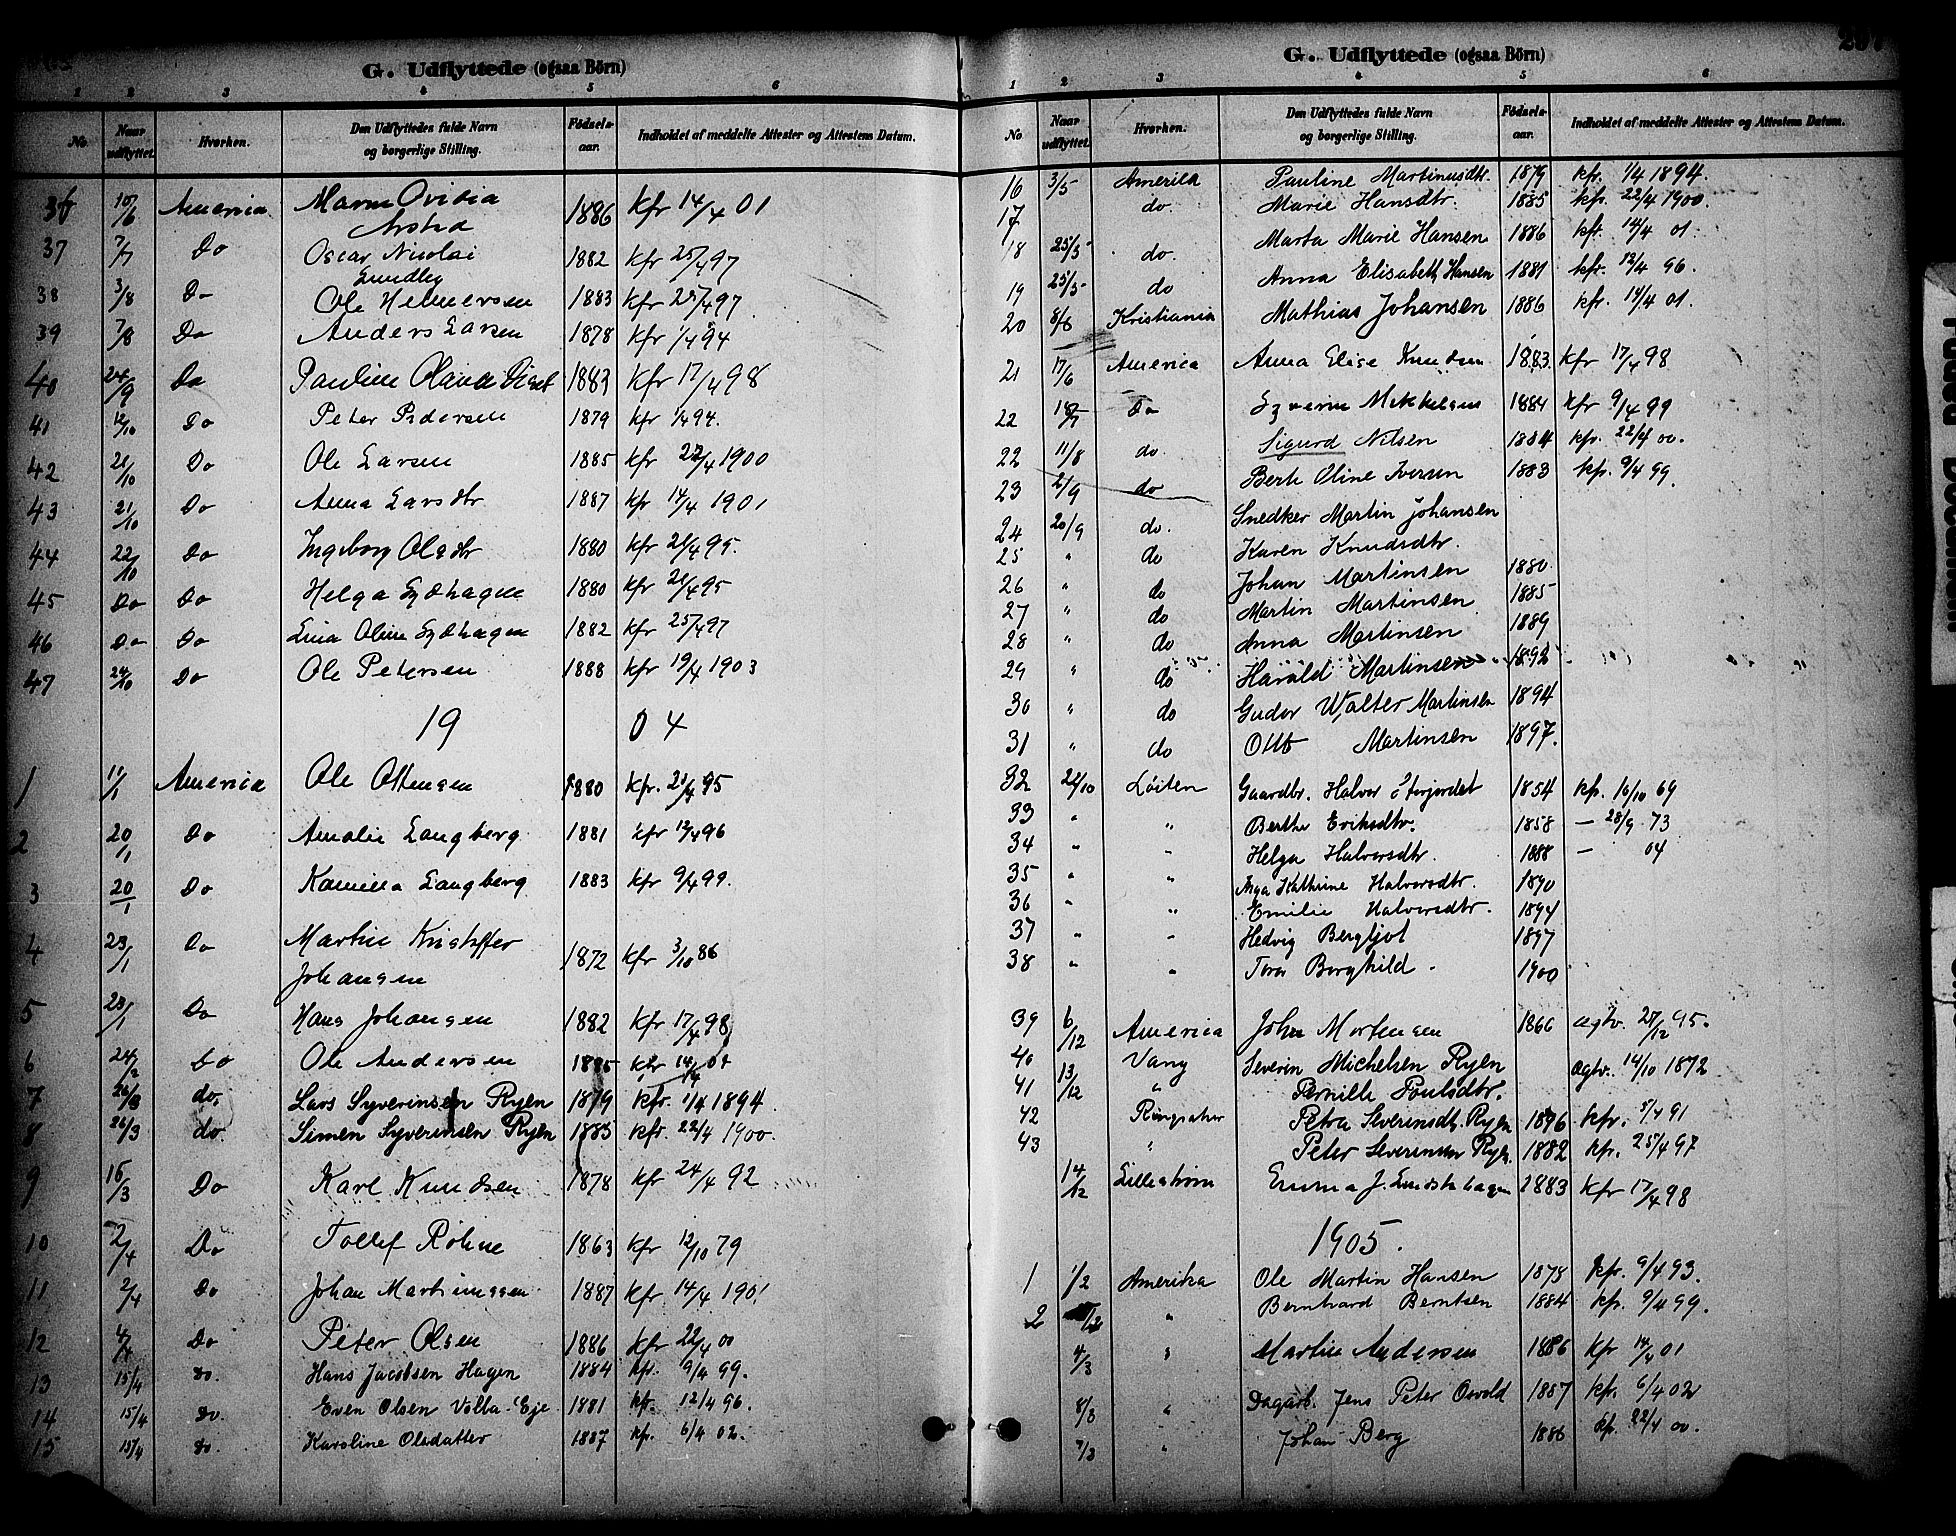 G. Udflyttede (ogsaa Börn)
1 2 3 4 5 6
No. Naar udflyttet. Hvorhen. Den Udflyttedes fulde Navn og borgerlige Stilling. Fødsels-aar. Indholdet af meddelte Attester og Attestens Datum.
36 10/6 America Maren Ovidia 1886 kfr 14/4 01
37 7/7 Do Oscar Nicolai 1882 kfr 25/4 97
Lundby
38 3/8 Do Ole Helmersen 1883 kfr 25/4 97
39 7/8 Do Anders Larsen 1878 kfr 1/4 94
40 24/9 Do Pauline Olava 1883 kfr 17/4 98
41 12/10 Do Peter Pedersen 1879 kfr 1/4 94.
42 21/10 Do Ole Larsen 1885 kfr 22/4 1900
43 21/10 Do Anna Larsdtr 1887 kfr 14/4 1901
44 22/10 Do Ingeborg Olsdtr 1880 kfr 21/4 95.
45 Do Do Helga Sydhagen 1880 kfr 21/4 95
46 Do Do Lina Oline Sydhagen 1882 kfr 25/4 97
47 24/10 Do Ole Petersen 1888 kfr 19/4 1903
19 04
1 11/1 America Ole Ottensen 1880 kfr. 21/4 95
2 20/1 Do Amalie Langberg 1881 kfr 12/4 96
3 20/1 Do Kamilla Langberg 1883 kfr 9/4 99.
4 23/1 Do Martin Kristoffer 1872 kfr 3/10 86
Johansen
5 23/1 Do Hans Johansen 1882 kfr 17/4 98
6 24/2 Do Ole Andersen 1885 kfr 14/4 01
7 26/3 do. Lars Syverinsen Ryen 1879 kfr. 1/4 1894.
8 26/3 do. Simen Syverinsen Ryen 1885 kfr. 22/4 1900.
9 16/3 Do Karl Knudsen 1878 kfr 24/4 92
10 2/4 Do Tollef Röhne 1863 kfr 12/10 79
11 2/4 Do Johan Martinussen 1887 kfr 14/4 1901
12 4/4 Do Peter Olsen 1886 kfr 22/4 00
13 15/4 do. Hans Jacobsen Hagen 1884 kfr. 9/4 99.
14 15/4 do. Even Olsen Volla-Eje 1881 kfr. 12/4 96.
15 15/4 do. Karoline Olsdatter 1887 kfr. 6/4 02.
G. Udflyttede (ogsaa Börn)
1 2 3 4 5 6
No Naar udflyttet. Hvorhen. Den Udflyttedes fulde Navn og borgerlige Stilling. Fødsels-aar. Indholdet af meddelte Attester og Attestens Datum.
16 3/5 Amerika Pauline Martinusdtr. 1879 kfr. 1/4 1894.
17 do. Marie Hansdtr. 1885 kfr. 22/4 1900.
18 25/5 do. Marta Marie Hansen 1886 kfr. 14/4 01.
19 25/5 do Anna Elisabeth Hansen 1881 kfr. 12/4 96.
20 8/6 Kristiania Mathias Johansen 1886 kfr. 14/4 01.
21 17/6 America Anna Elise Knudsen 1883 kfr 17/4 98
22 18/7 Do Syverin Mikkelsen 1884 kfr 9/4 99
22 11/8 do. Sigurd Nilsen 1884 kfr. 22/4 00.
23 2/9 do Berte Oline Iversen 1883 kfr. 9/4 99.
24 20/9 do. Snedker Martin Johansen
25 " do Karen Knudsdtr.
26 " do Johan Martinsen 1880
27 " do Martin Martinsen 1885
28 " do Anna Martinsen 1889
29 " do Harald Martinsen 1892
30 " do Gudor Walter Martinsen 1894
31 " do Otto Martinsen 1897.
32 22/10 Löiten Gaardbr. Halvor 1854 kfr. 16/10 69
33 " " Berthe Eriksdtr. 1858 — 28/9 73
34 " " Helga Halvorsdtr. 1888 — 04
35 " " Inga Kathrine Halvorsdtr. 1890
36 " " Emilie Halvorsdtr. 1894
37 " " Hedvig Bergljot 1897
38 " " Tora Borghild. 1900
39 6/12 America John Mortensen 1866 agtv. 27/12 95.
40 13/12 Vang Severin Michelsen Ryen agtv. 14/10 1872.
41 " Pernille Poulsdtr.
42 Ringsaker Petra Severinsdt. Ryen 1876 kfr. 5/4 91
43 " Peter Severinsen Ryen. 1882 kfr. 25/4 97
14/12 Lilleström Emma J. 1883 kfr 17/4 98
1905.
1 1/2 Amerika Ole Martin Hansen 1878 kfr. 9/4 93.
2 " Bernhard Berntsen 1884 kfr. 9/4 99.
4/3 " Martin Andersen 1886 kfr 14/4 01
8/3 " Dagarb. Jens Peter Osvold 1887 kfr. 6/4 02
7/3 " Johan Berg 1886 kfr. 22/4 00.